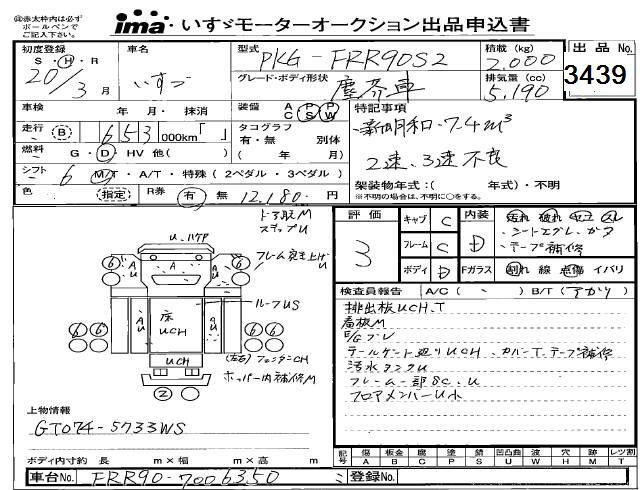 ㊟赤太枠内は必ず
ボールペンで
ご記入下さい。
ima・いすゞモーターオークション出品申込書
初度登録
S・H・R
20/3月
車名
いすゞ
型式
PKG-FRR90S2
積載(kg)
2.000
出品No.
3439
グレード・ボディ形状
塵芥車
排気量(cc)
5.190
車検 年・月・抹消
装備 A P P
C S W
特記事項
走行 B 653,000km「 」
タコグラフ
有・無 別体
( 年 月)
・新明和・7.4m³
燃料 G・D・HV 他( )
2速、3速不良
シフト 6 M/T・A/T・特殊(2ペダル・3ペダル)
架装物年式:( 年式)・不明
※不明の場合は、不明に○をする。
色 (指定) R券 有 無 12,180.円
評価
3
キャブ C
フレーム C
ボディ D
内装 D
汚れ 破れ
・シートエグレ・ガタ
・テープ補修
Fガラス 割れ 線 点傷 イバリ
ステップU
U.ハゲP
フレーム突き上げU
ルーフUS
床
UCH
AU
AU
UCH
(左右)フェンダーCH
ホッパー内補修M
検査員報告 A/C( ) B/T(アカリ)
排出板UCH.T
看板M
テールゲート廻りUCH、カバーT.テープ補修
汚水タンクU
フレーム一部SC.U
フロアメンバーU小
上物情報
GT074-5733WS
記号 傷A 板金B 腐C 塗P 錆S 凹凸曲U 波W 穴H 跡M レツ割T
ボディ内寸約 長 m×幅 m×高 m
車台No. FRR90-7006350
登録No.